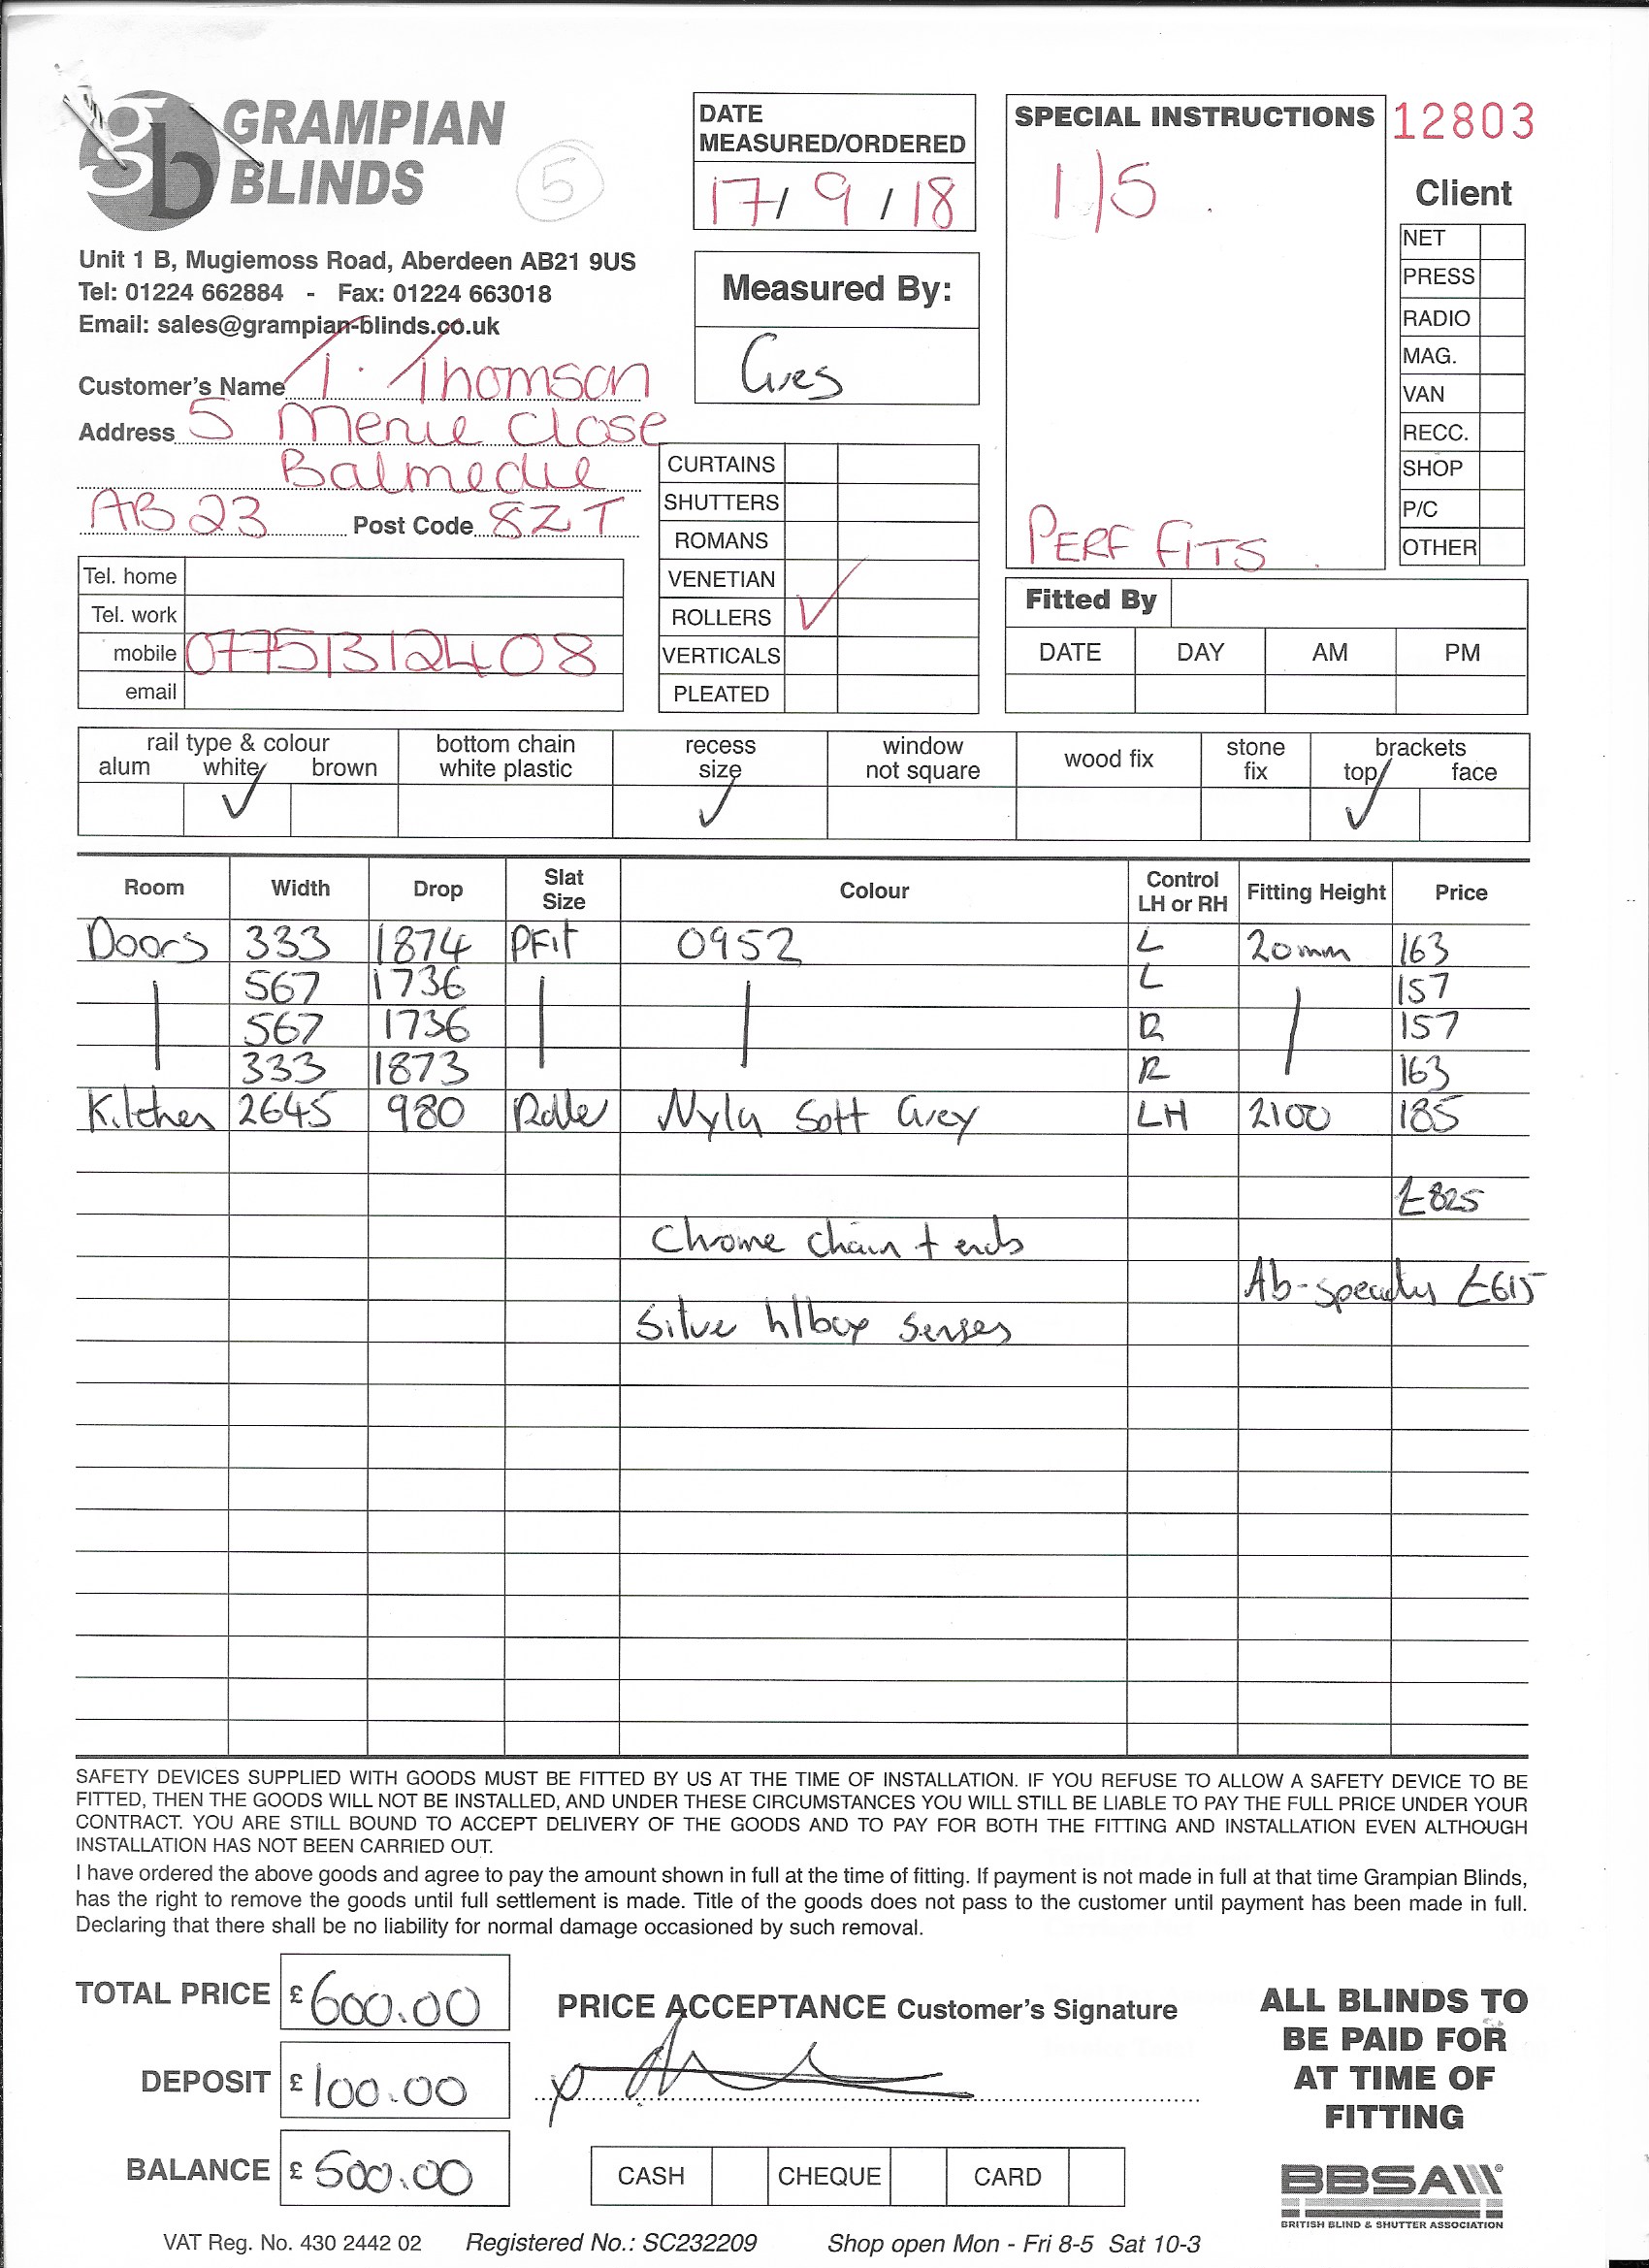 gb GRAMPIAN BLINDS
5
Unit 1 B, Mugiemoss Road, Aberdeen AB21 9US
Tel: 01224 662884 - Fax: 01224 663018
Email: sales@grampian-blinds.co.uk
Customer's Name T. Thomson
Address 5 Menie Close
Balmedie
AB23 Post Code 8ZT
Tel. home
Tel. work
mobile 07751312408
email
DATE MEASURED/ORDERED
17/9/18
Measured By:
Greg
CURTAINS
SHUTTERS
ROMANS
VENETIAN
ROLLERS ✓
VERTICALS
PLEATED
SPECIAL INSTRUCTIONS
1/5
PERF FITS
12803
Client
NET
PRESS
RADIO
MAG.
VAN
RECC.
SHOP
P/C
OTHER
Fitted By
DATE DAY AM PM
rail type & colour bottom chain recess window wood fix stone brackets
alum white brown white plastic size not square fix top face
✓ ✓ ✓
Room Width Drop Slat Size Colour Control LH or RH Fitting Height Price
Doors 333 1874 PFit 0952 L 20mm 163
567 1736 L 157
567 1736 R 157
333 1873 R 163
Kitchen 2645 980 Roller Nyla Soft Grey LH 2100 185
£825
Chrome chain + ends
£615
Silver
SAFETY DEVICES SUPPLIED WITH GOODS MUST BE FITTED BY US AT THE TIME OF INSTALLATION. IF YOU REFUSE TO ALLOW A SAFETY DEVICE TO BE
FITTED, THEN THE GOODS WILL NOT BE INSTALLED, AND UNDER THESE CIRCUMSTANCES YOU WILL STILL BE LIABLE TO PAY THE FULL PRICE UNDER YOUR
CONTRACT. YOU ARE STILL BOUND TO ACCEPT DELIVERY OF THE GOODS AND TO PAY FOR BOTH THE FITTING AND INSTALLATION EVEN ALTHOUGH
INSTALLATION HAS NOT BEEN CARRIED OUT.
I have ordered the above goods and agree to pay the amount shown in full at the time of fitting. If payment is not made in full at that time Grampian Blinds,
has the right to remove the goods until full settlement is made. Title of the goods does not pass to the customer until payment has been made in full.
Declaring that there shall be no liability for normal damage occasioned by such removal.
TOTAL PRICE £ 600.00
DEPOSIT £ 100.00
BALANCE £ 500.00
PRICE ACCEPTANCE Customer's Signature
CASH CHEQUE CARD
ALL BLINDS TO
BE PAID FOR
AT TIME OF
FITTING
BBSA
BRITISH BLIND & SHUTTER ASSOCIATION
VAT Reg. No. 430 2442 02 Registered No.: SC232209 Shop open Mon - Fri 8-5 Sat 10-3